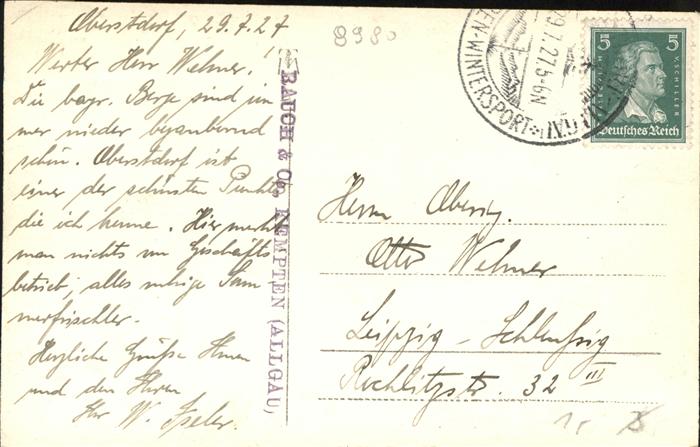 Oberstdorf, 29.7.27
Werter Herr Welmer!
Die bayr. Berge sind im
mer wieder bezaubernd
schön. Oberstdorf ist
einer der schönsten Punkte
die ich kenne. Hier merkt
man nichts von Geschäfts
betrieb, alles ruhige Som
merfrischler.
Herzliche Grüße Ihnen
und den Ihren
Ihr W.
8980
RAUCH & Co., KEMPTEN (ALLGÄU,
WINTERSPORT
29.7.27.5-6N
5 5
V. SCHILLER
Deutsches Reich
Herrn Obering.
Otto Welmer
Leipzig-Schleußig
Rochlitzstr. 32 III